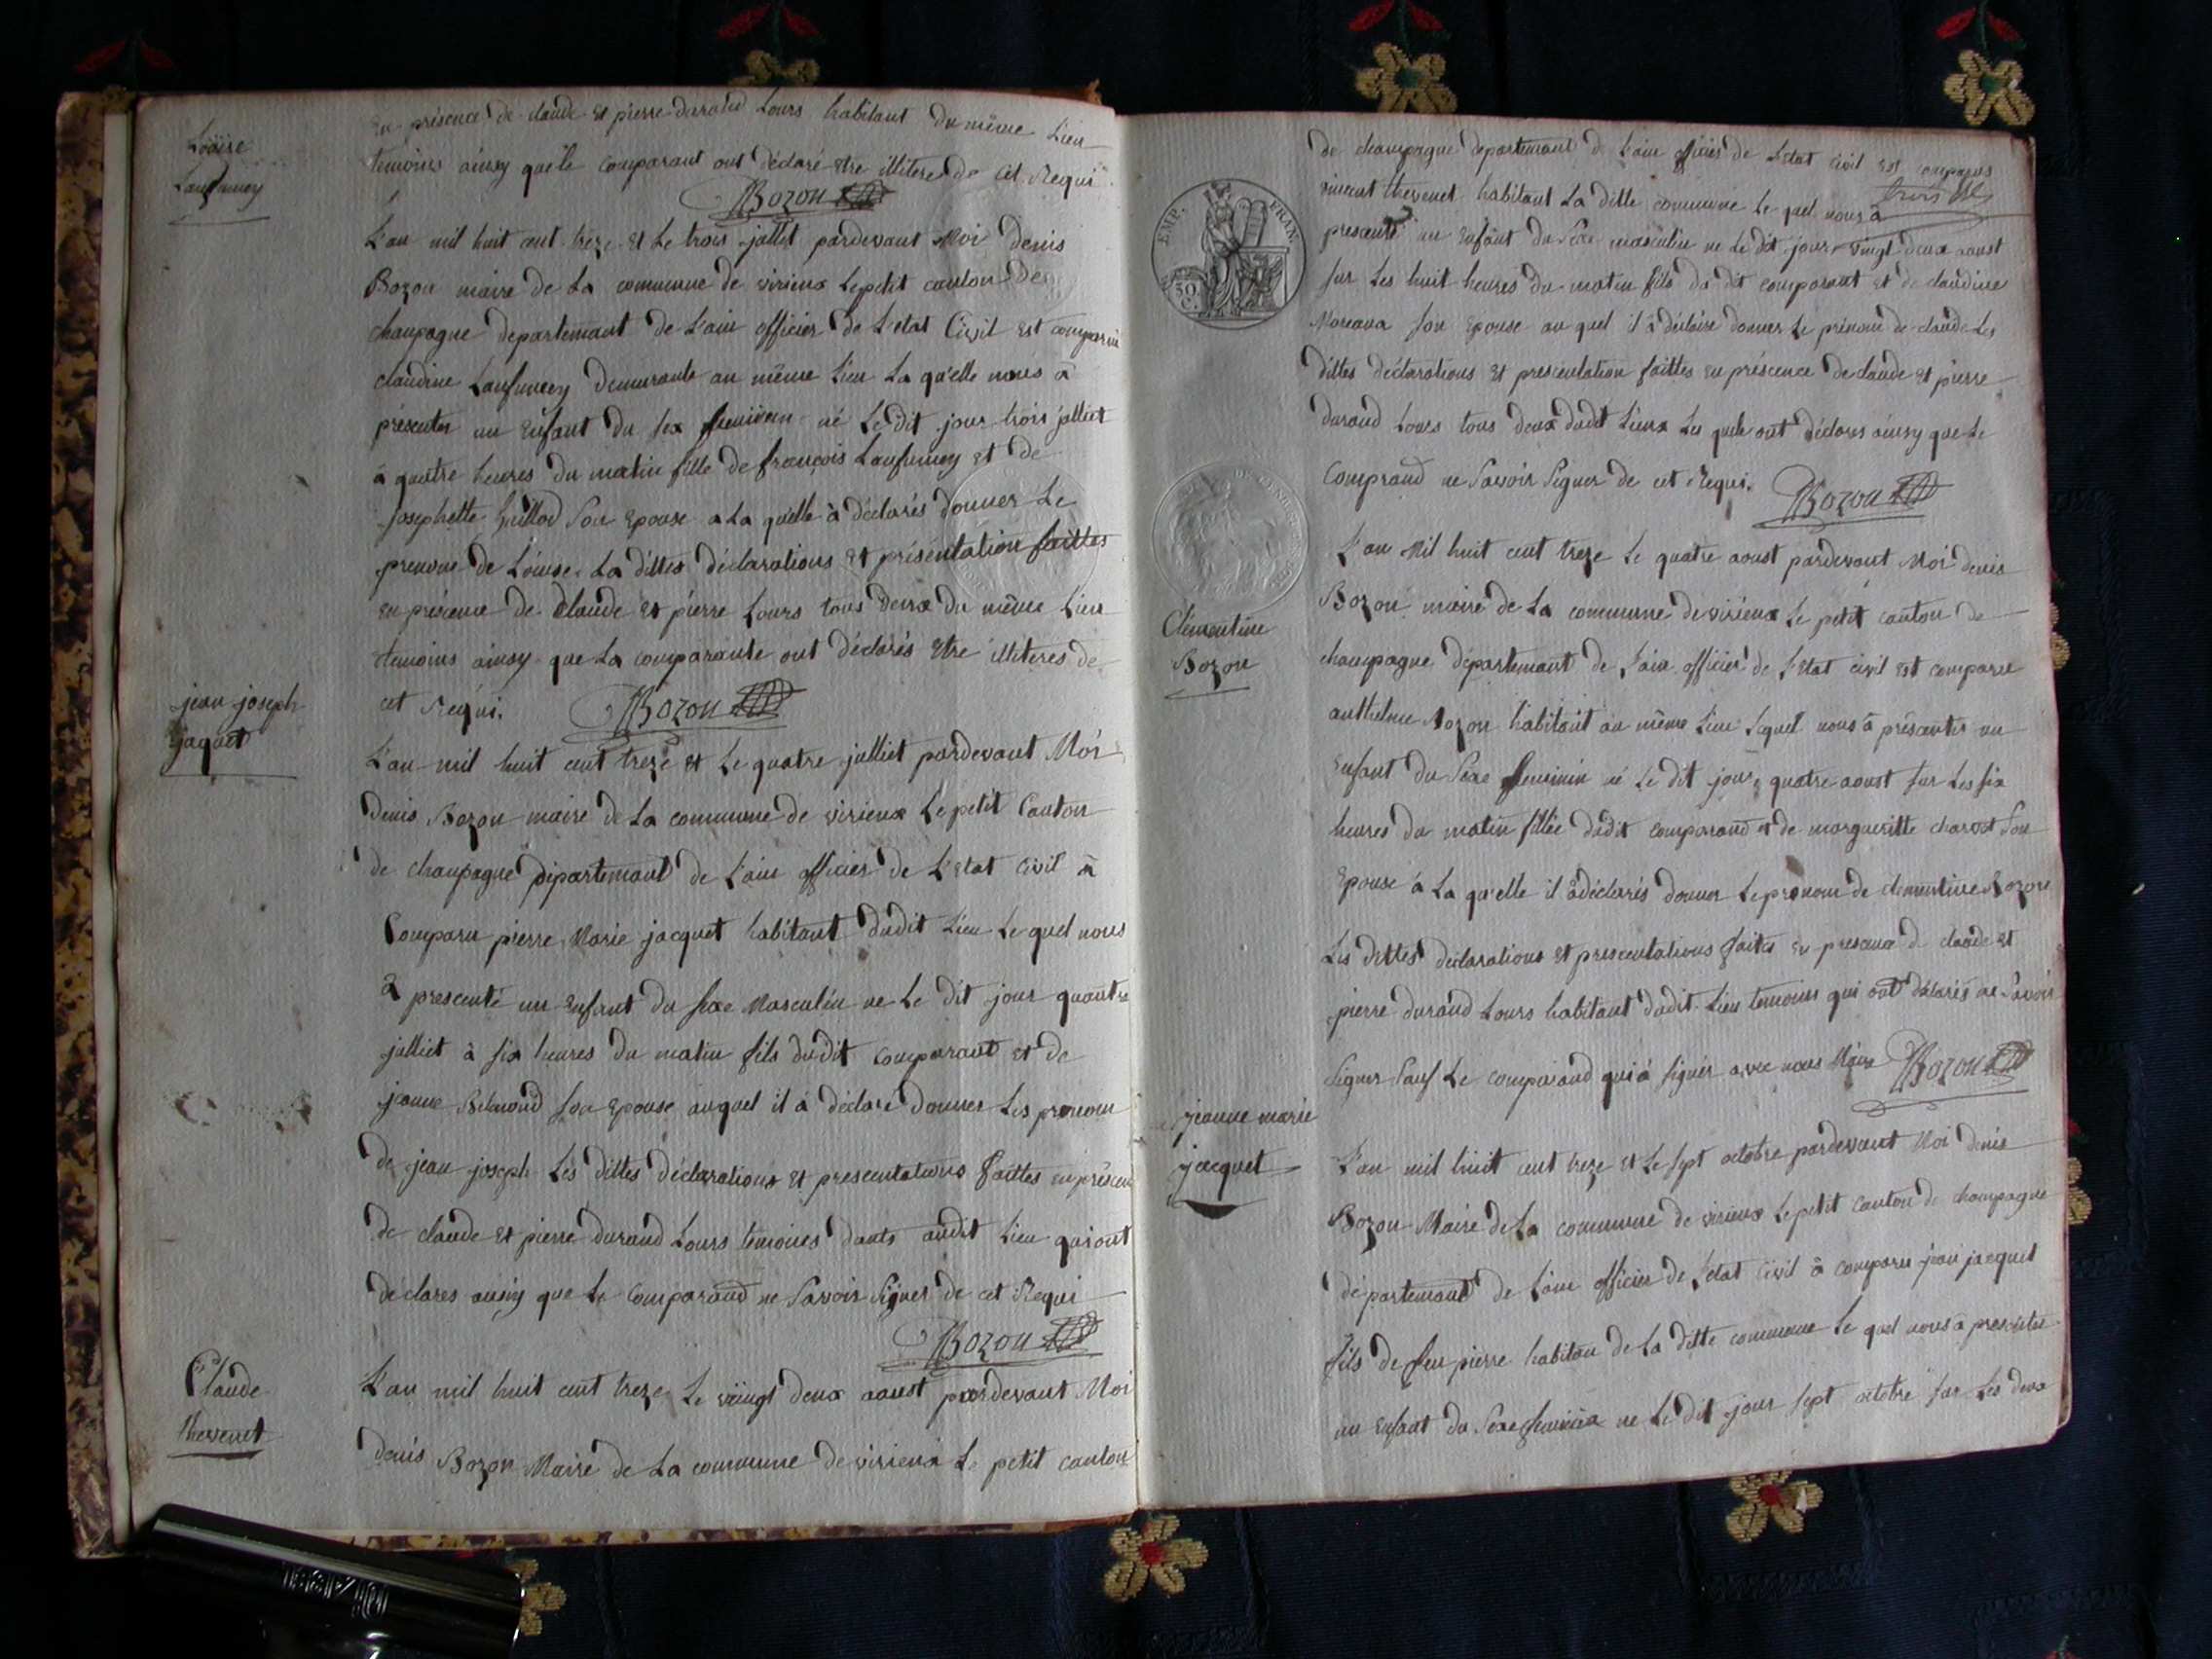 en présence de claude et pierre durand Lours habitant du même Lieu
temoins ainsy que le comparant ont déclaré etre illitere de cet Requi
Bozon
Loüise
Laufumey
L'an mil huit cent treze et Le trois jullet pardevant Moi denis
Bozon maire de La commune de virieux Le petit canton de
champagne departemant de L'ain officier de L'etat Civil est comparue
claudine Laufumey demurante au même Lieu La qu'elle nous à
présenter un enfant du sex feminien né Le dit jour trois julliet
à quatre heures du matin fille de françois Laufumey et de
josephette huillod son epouse a La quelle à déclarés donner Le
prenome de Loüise. La dittes déclarations et présentation faittes
en présence de Claude et pierre Lours tous deux du même Lieu
temoins ainsy que La comparante ont déclarés etre illiteres de
cet Requi.
Bozon
jean joseph
jaquet
L'an mil huit cent treze et Le quatre julliet pardevant Moi
denis Bozon maire de La commune de virieux Le petit Canton
de champagne departemant de L'ain officier de L'etat Civil à
Comparu pierre Marie jacquet habitant dudit Lieu Le quel nous
a presenté un enfant du sexe Masculin ne Le dit jour quatre
julliet à six heures du matin fils dudit comparant et de
jeanne son epouse auquel il à déclaré donner Les prenom
de jean joseph Les dittes déclarations et presentations faittes en présence
de claude et pierre durand Lours temoins audit Lieu qui ont
déclares ainsy que Le comparand ne savoir signer de cet Requi
Bozon
Claude
thevenet
L'an mil huit cent treze Le viingt deux aoust pardevant Moi
denis Bozon Maire de La commune de virieux Le petit canton
de champagne departemant de L'ain officier de L'etat civil est comparus
vincent thevenet habitant La ditte commune Le quel nous à
EMP. FRAN.
50 C.
presenté un enfant du sexe masculin ne Le dit jour vingt deux aoust
sur Les huit heures du matin fils du dit comparant et de claudine
Moreaux son epouse au quel il à déclaire donner Le prénom de claude Les
dittes déclarations et presentation faittes en présence de claude et pierre
durand Lours tous deux dudit Lieux Les quels ont déclares ainsy que Le
comprand ne savoir signer de cet Requi.
Bozon
Clementine
Bozon
L'an Mil huit cent treze Le quatre aoust pardevant Moi denis
Bozon maire de La commune de virieux Le petit canton de
champagne département de L'ain officier de L'etat civil est comparu
anthelme Bozon habitant au même Lieu Lequel nous à présenter un
enfant du sexe feminin né Le dit jour quatre aoust sur Les six
heures du matin fillée dudit comparand et de margueritte charvet son
epouse à La qu'elle il à déclarés donner Le prenom de clementine Bozon
Les dittes declarations et presentations faites en presence de claude et
pierre durand Lours habitant dudit Lieu temoins qui ont déclarés ne savoir
signer sauf Le comparand qui à signér avec nous Maire Bozon
jeanne marie
jacquet
L'an mil huit cent treze et Le sept octobre pardevant Moi denis
Bozon Maire de La commune de virieux Le petit Canton de champagne
departemant de L'ain officier de L'etat civil à comparu jean jacquet
fils de feu pierre habitan de La ditte commune Le quel nous à presenter
un enfant du sexe feminin ne Le dit jour sept octobre sur Les deux